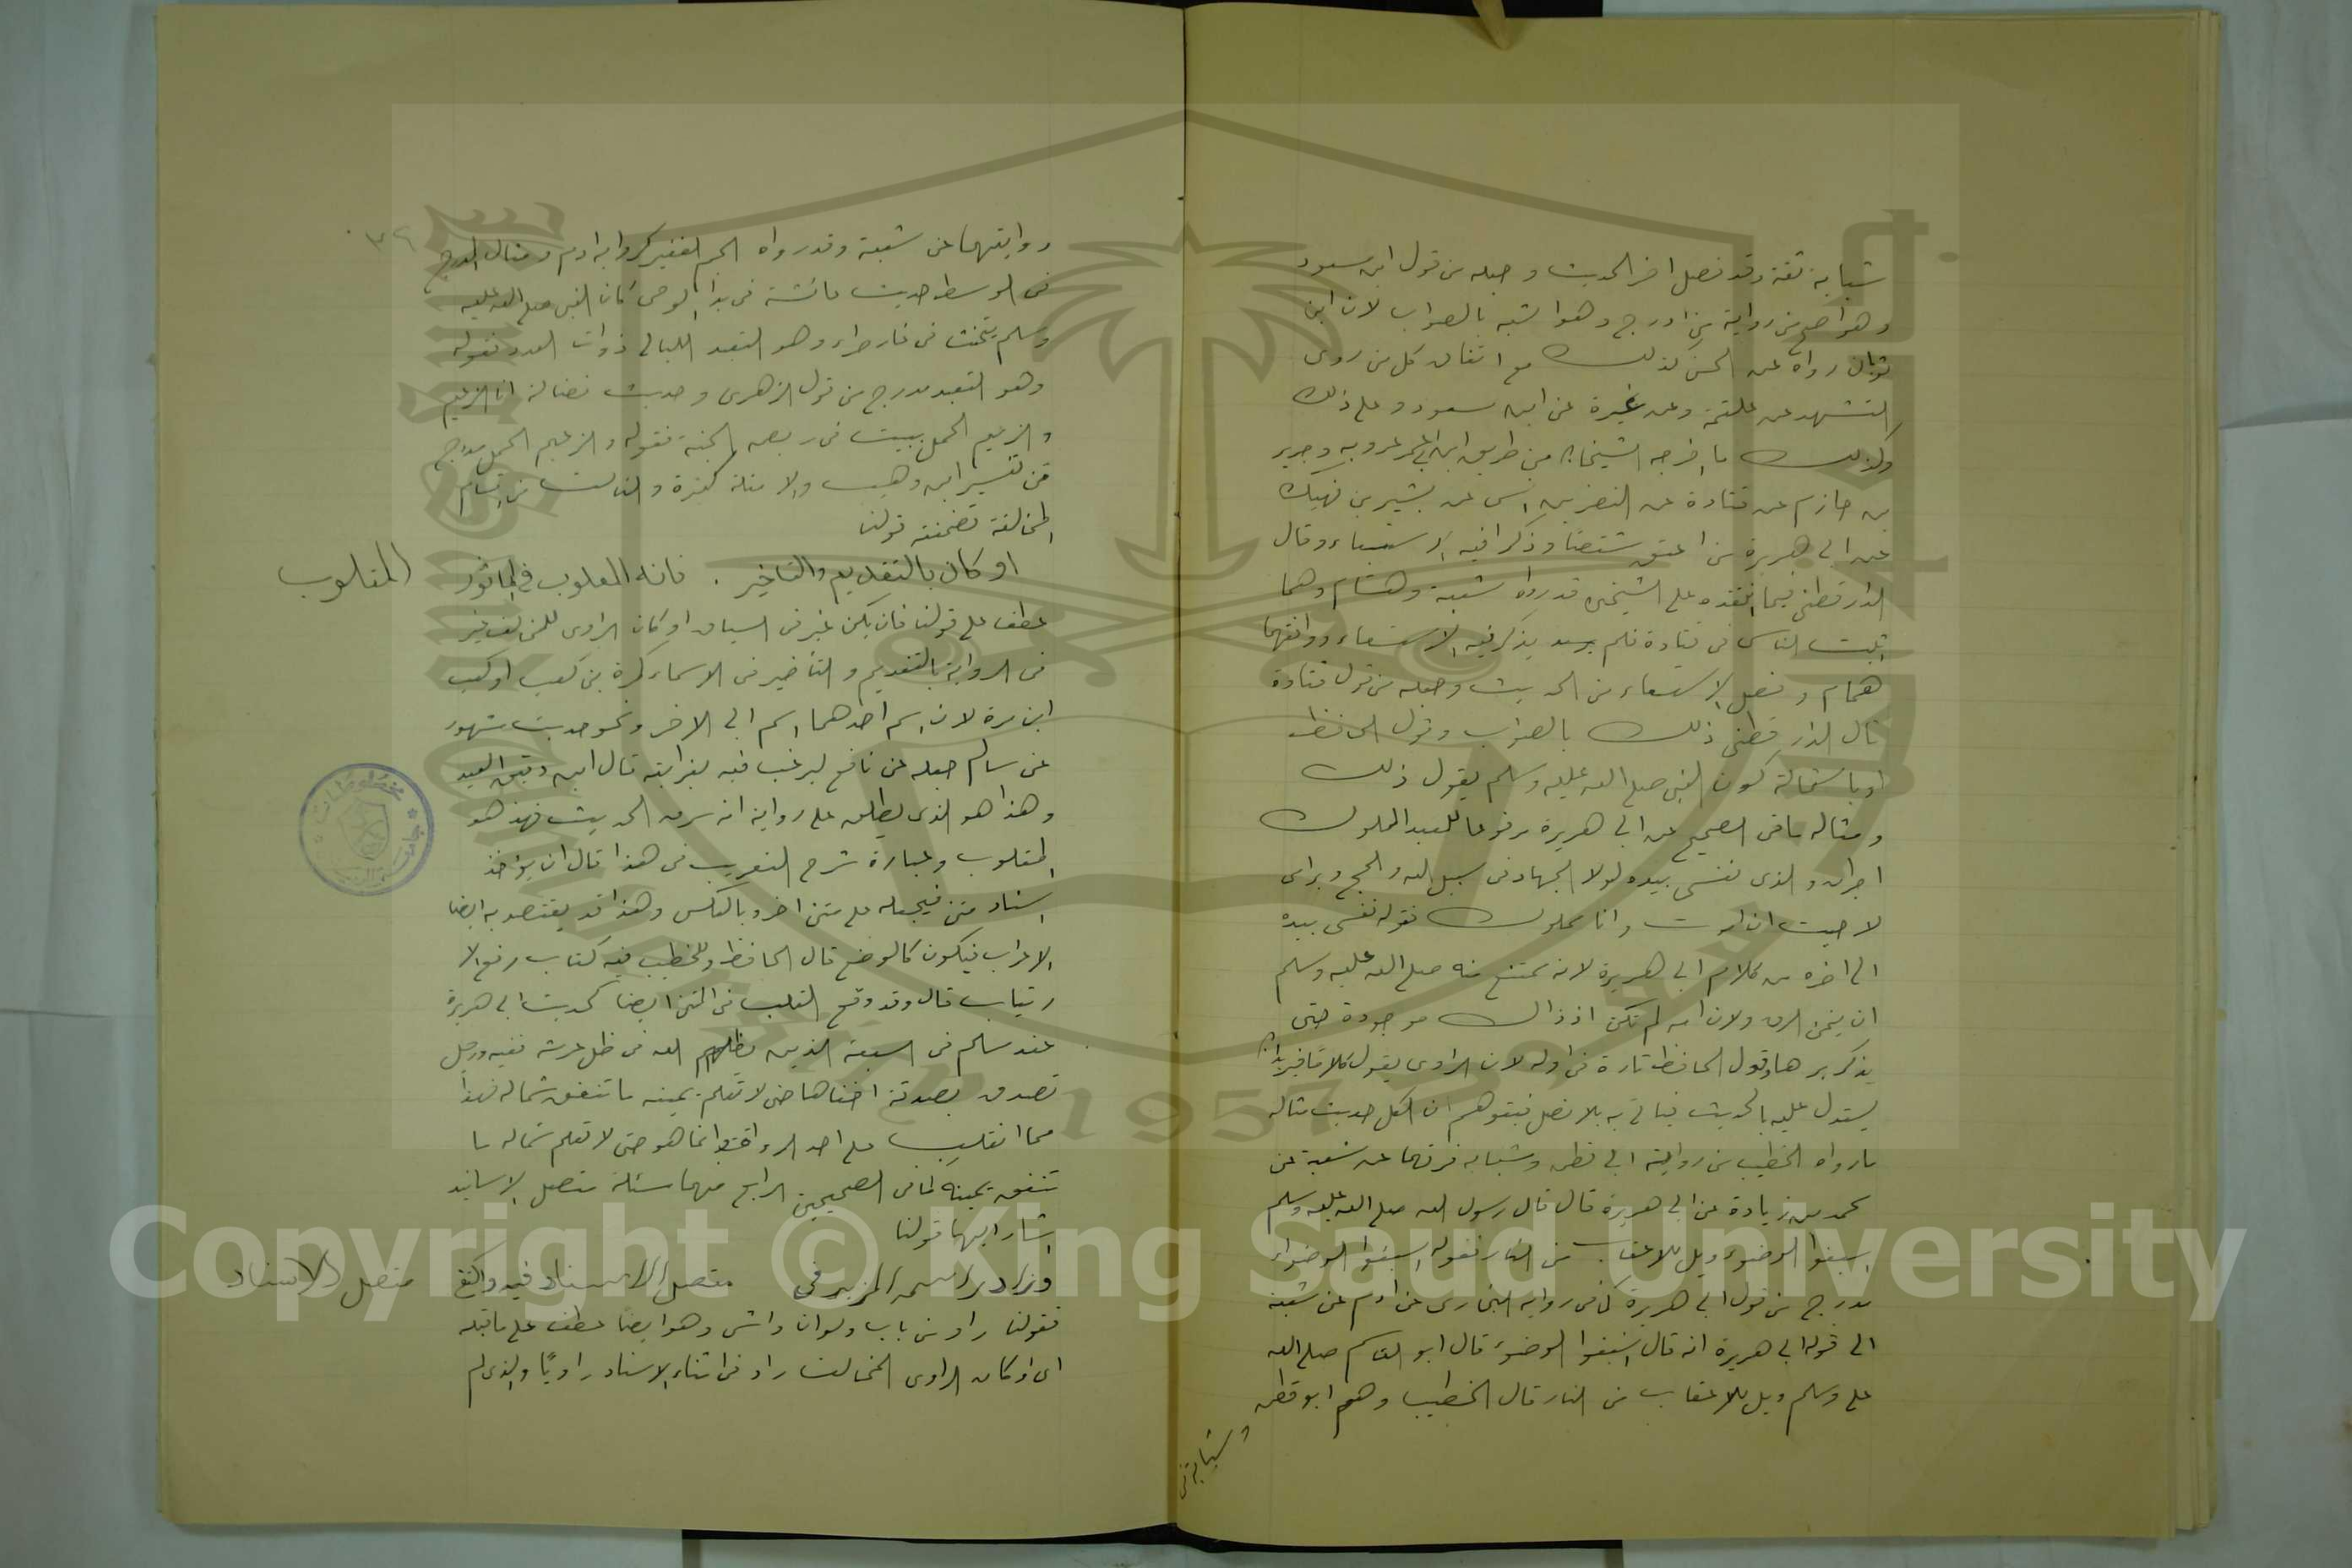 شبابة ثقة وقد فصل اخر الحديث وجعله من قول ابن مسعود
وهو اصح من رواية من ادرج وهو اشبه بالصواب لان ابن
ثوبان رواه عن الحسن كذلك مع اتفاق كل من روى
التشهد عن علقمة وعن غيره عن ابن مسعود وعلى ذلك
وكذلك ما اخرجه الشيخان من طريق ابن ابى عروبه وجرير
بن حازم عن قتادة عن النضر بن انس عن بشير بن نهيك
عن ابى هريرة من اعتق شقصا وذكرا فيه الاستسعاء وقال
الدارقطنى فيما انتقده على الشيخين قد رواه شعبة وهشام وهما
اثبت الناس فى قتادة فلم يذكر فيه الاستسعاء ووافقهما
همام وفصل الاستسعاء من الحديث وجعله من قول قتادة
قال الدارقطنى ذلك بالصواب وقول الحافظ
او باستحالة كون النبى صلى الله عليه وسلم يقول ذلك
ومثاله ما فى الصحيح عن ابى هريرة مرفوعا للعبد المملوك
اجران والذى نفسى بيده لولا الجهاد فى سبيل الله والحج وبر امى
لاحببت ان اموت وانا مملوك فقوله نفسى بيده
الى اخره من كلام ابى هريرة لانه يمتنع منه صلى الله عليه وسلم
ان يتمنى الرق ولان امه لم تكن اذ ذاك موجودة حتى
يذكر برها وقول الحافظ تارة فى اوله لان الراوى يقول كلاما فيريد ان
يستدل عليه بالحديث فياتى به بلا فصل فيتوهم ان الكل حديث مثاله
ما رواه الخطيب من رواية ابى قطن وشبابة فرقهما عن شعبة عن
محمد بن زيادة عن ابى هريرة قال قال رسول الله صلى الله عليه وسلم
اسبغوا الوضوء ويل للاعقاب من النار فقوله اسبغوا الوضوء
مدرج من قول ابى هريرة كما فى رواية البخارى عن ادم عن شعبة
الى قوله ابى هريرة انه قال اسبغوا الوضوء قال ابو القاسم صلى الله
على وسلم ويل للاعقاب من النار قال الخطيب وهم ابو قطن
وشبابة فى
٣٩
روايتهما عن شعبة وقد رواه الجم الغفير كرواية ادم ومثال المدرج
فى الوسط حديث عائشة فى بدا الوحى كان النبى صلى الله عليه
وسلم يتحنث فى غار حراء وهو التعبد الليالى ذوات العدد فقوله
وهو التعبد مدرج من قول الزهرى وحديث فضالة انا الزعيم
والزعيم الحميل ببيت فى ربض الجنة فقوله والزعيم الحميل مدرج
من تفسير ابن وهب والامثلة كثيرة والثالث من اقسام
المخالفة تضمنته قولنا
او كان بالتقديم والتاخير . فانه المقلوب فى الماثور
المقلوب
عطف على قولنا فان يكن غير فى السياق او كان الراوى للمخالف غير
فى الرواية بالتقديم والتأخير فى الاسماء كمرة بن كعب او كعب
ابن مرة لان اسم احدهما اسم ابى الاخر ونحو حديث مشهور
عن سالم جعله عن نافع ليرغب فيه لغرابته قال ابن دقيق العيد
وهذا هو الذى يطلق على رواية انه سرق الحديث فهذا هو
المقلوب وعبارة شرح التقريب فى هذا قال ان يؤخذ
اسناد متن فيجعله على متن اخر وبالعكس وهذا قد يقتصد به ايضا
الاغراب فيكون كالوضع قال الحافظ وللخطيب فيه كتاب رفع الا
رتياب قال وقد وقع القلب فى المتن ايضا كحديث ابى هريرة
عند مسلم فى السبعة الذين يظلهم الله فى ظل عرشه ففيه ورجل
تصدق بصدقة اخفاها حتى لا تعلم يمينه ما تنفق شماله فهذا
مما انقلب على احد الرواة وانما هو حتى لا تعلم شماله ما
تنفق يمينه كما فى الصحيحين الرابع منهما مسئلة متصل الاسانيد
اشار اليها قولنا
وزاد راو سمه المزيد فى متصل الاسناد فيه واكتفى
متصل الاسناد
فقولنا راو من باب وهو ايضا عطف على ما قبله
اى او كان الراوى المخالف زاد فى اثناء الاسناد راويًا والذى لم
مخطوطات
جامعة
Copyright © King Saud University
1957